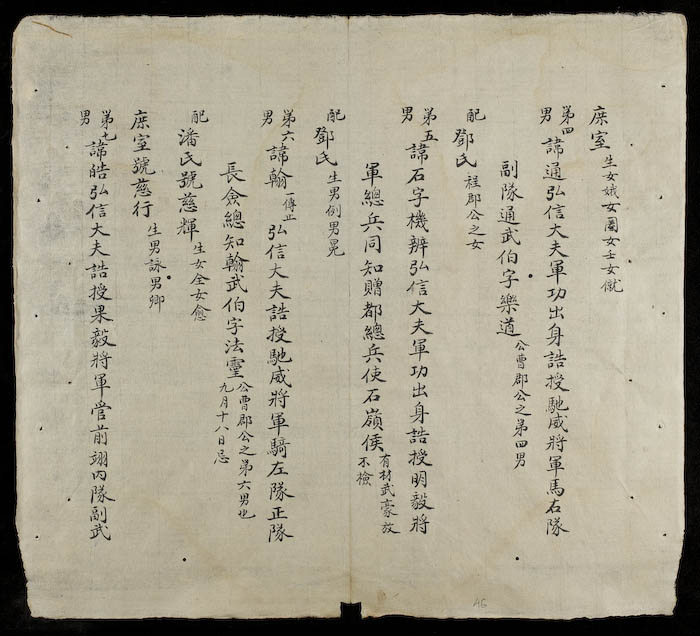 庶室 生女娥女圖女壬女僦
第四男 諱通弘信大夫軍功出身誥授馳威將軍馬右隊
副隊通武伯字樂道 公曹郡公之第四男
配鄧氏 程郡公之女
第五男 諱石字機辨弘信大夫軍功出身誥授明毅將
軍總兵同知贈都總兵使石嶺侯 有材武豪放不檢
配鄧氏 生男例男晃
第六男 諱翰 一傳止 弘信大夫誥授馳威將軍騎左隊正隊
長僉總知翰武伯字法靈 公曹郡公之第六男也九月十八日忌
配潘氏號慈輝 生女全女愈
庶室號慈行 生男詠男卿
第七男 諱皓弘信大夫誥授果毅將軍管前翊內隊副武
46